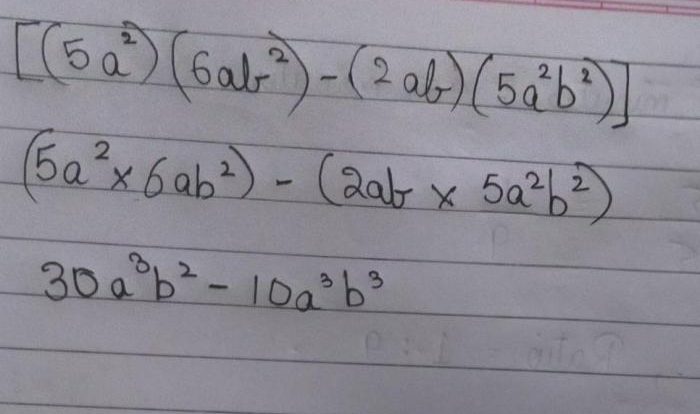 [(5a²)(6ab²)-(2ab)(5a²b²)]
(5a²×6ab²) - (2ab × 5a²b²)
30a³b² - 10a³b³